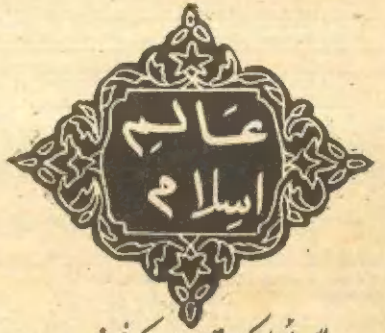 عَالمِ
اسِلام